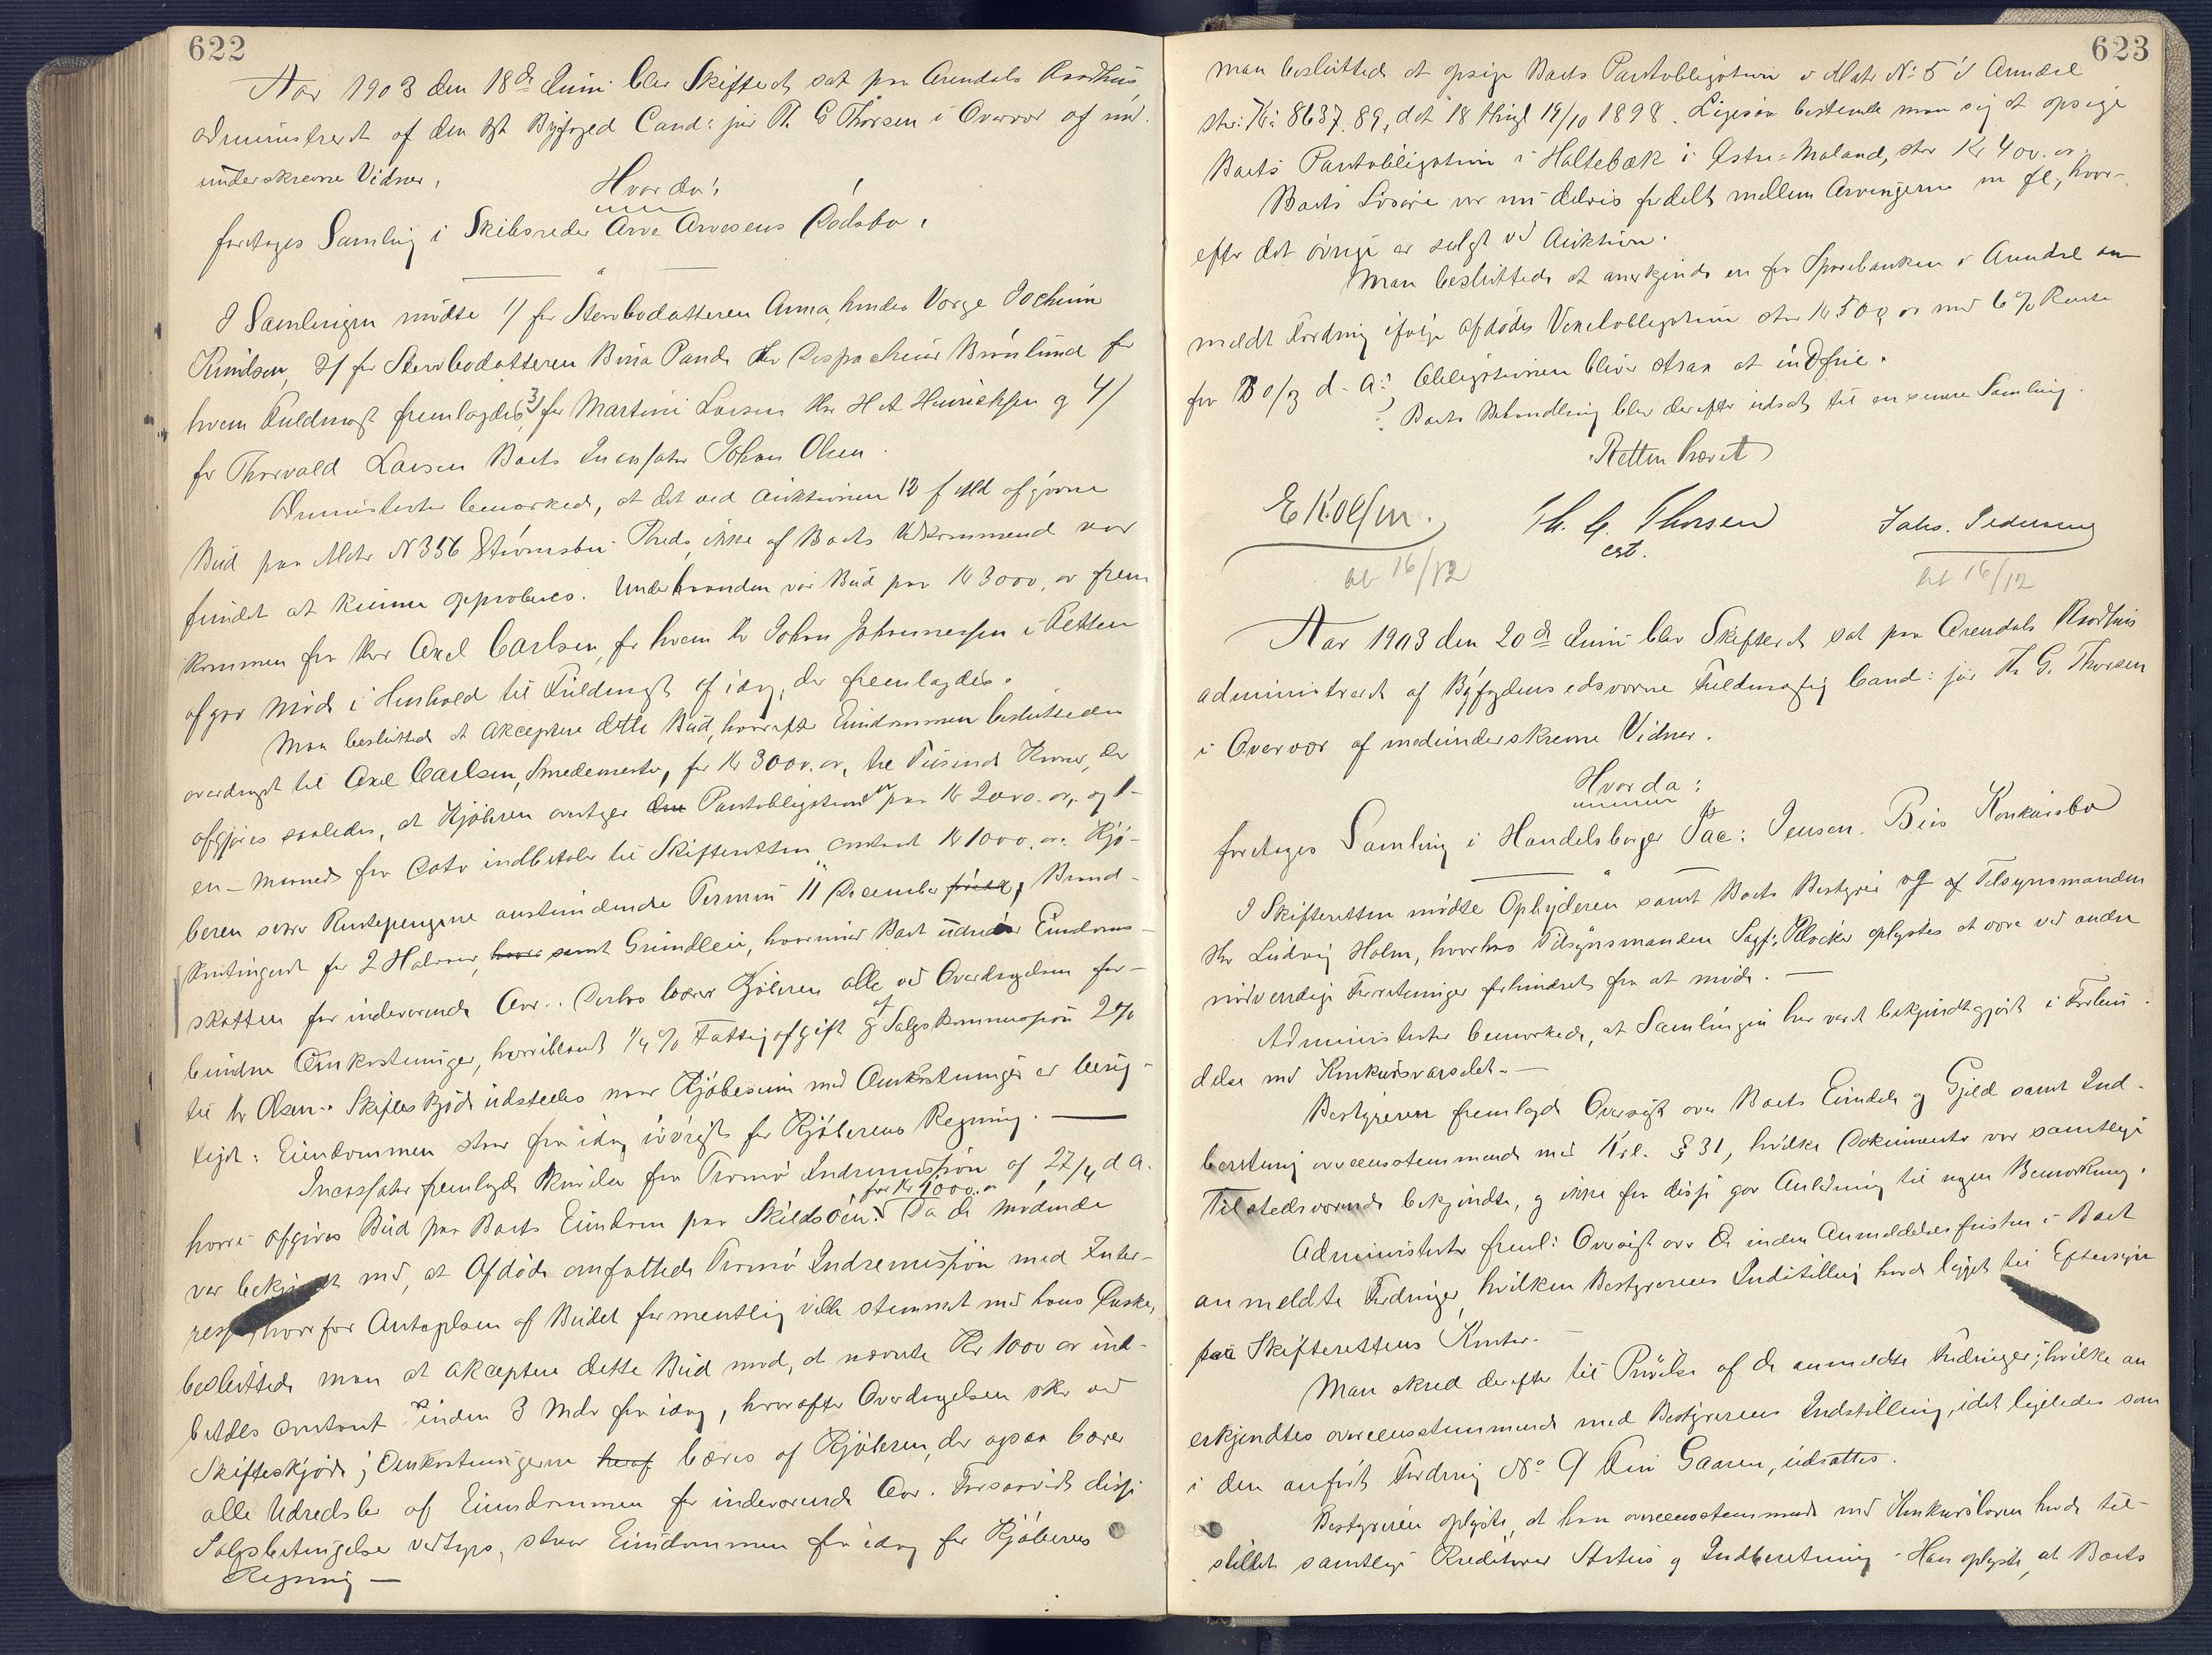 622
Aar 1903 den 18de Juni blev Skifteret sat paa Arendals Raadhus
administreret af den kst Byfoged Cand: jur Th. G Thorsen i Overvær af med-
underskrevne Vidner,
Hvorda!
foretoges Samling i Skibsreder Arve Arvesens Dødsbo,
I Samlingen mødte 1/ for Stervbodatteren Anna, hendes Værge Jochum
Knudsen, 2/ for Stervbodatteren Bina Pande Hr Dispacheur Brønlund for
hvem Fuldmagt fremlagdes, 3/ for Martini Larsen Hr H A Hinrichsen og 4/
for Thorvald Larsen Boets Incassator Johan Olsen.
Administrator bemærkede, at det ved Auktionen 12 f Md afgivne
Bud paa Matr N 356 Strømsbu Reds, ikke af Boets Vedkommende var
fundet at kunne approberes. Underhaanden var Bud paa Kr 3000,00 frem
kommen fra Hr Axel Carlsen, for hvem Hr Johan Johannessen i Retten
afgav Møde i Henhold til Fuldmagt af idag, der fremlagdes.
Man besluttede at akceptere dette Bud, hvorefter Eiendommen besluttedes
overdraget til Axel Carlsen, Smedemester, for Kr 3000.00, tre Tusinde Kroner, der
afgjøres saaledes, at Kjøberen overtager den Pantobligation paa Kr 2000.00, og 1-
en - Maaned fra Dato indbetaler til Skifteretten contant Kr 1000.00. Kjø-
beren svarer Rentepengene anstundende Termin 11 December første, Brand-
kontingent for 2 Halvaar, hvori samt Grundleie, hvorimod Boet udreder Eiendoms-
skatten for indeværende Aar. Desuden bærer Kjøberen alle ved Overdragelsen for-
bundne Omkostninger, hvoriblandt 1/4 % Fattigafgift og af Salgskommission 2 %
til Hr Olsen. Skifteskjøde udstedes naar Kjøbesum med Omkostninger er berig-
tiget. Eiendommen staar fra idag iøvrigt for Kjøberens Regning.
Incassator fremlagde Skrivelse fra Tromø Indremission af 27/4 d A.
hvori afgives Bud paa Boets Eiendom paa Skilsøen for Kr 1000.00. Da de mødende
var bekjendt med, at Afdøde omfattede Tromø Indremission med Inter-
resse, hvorfor Antagelsen af Budet formentlig vilde stemmet med hans Ønske,
besluttede man at akceptere dette Bud mod, at nævnte Kr 1000 00 ind-
betales contant inden 3 Mdr fra idag, hvorefter Overdragelsen sker ved
Skifteskjøde; Omkostningerne heraf bæres af Kjøberen, der ogsaa bærer
alle Udredsler af Eiendommen for indeværende Aar. Forsaavidt disse
Salgsbetingelser vedtages, staar Eiendommen fra idag for Kjøberens
Regning —
623
Man besluttede at opsige Boets Pantobligation i Matr No: 5 i Arendal
stor: Kr: 8637.89, dat 18 thingl 19/10 1898. Ligesaa bestemte man sig at opsige
Boets Pantobligation i Holtebæk i Østre-Moland, stor Kr 400.00.
Boets Løsøre var nu delvis fordelt mellem Arvingerne m fl, hvor-
efter det øvrige er solgt ved Auktion.
Man besluttede at anerkjende en fra Sparebanken i Arendal an
meldt Fordring ifølge afdødes Vexelobligation stor Kr 500 00 med 6 % Rente
fra 30/3 d. A: Obligationen bliver strax at indfrie.
Boets Behandling blev derefter udsat til en senere Samling.
Retten hævet
E K Olsen. Th. G. Thorsen Jahs. Pedersen
cst.
bet 16/12 bet 16/12
Aar 1903 den 20de Juni blev Skifteret sat paa Arendals Raadhus
administreret af Byfogdens edsvorne Fuldmægtig Cand: jur Th. G. Thorsen
i Overvær af medunderskrevne Vidner.
Hvorda:
foretoges Samling i Handelsborger Jac: Jensen. Bies Konkursbo
I Skifteretten mødte Opbyderen samt Boets Bestyrer og af Tilsynsmænden
Hr Ludvig Holm, hvorhos Tilsynsmanden Sagf: Plöcker oplystes at være ved andre
nødvendige Forretninger forhindret fra at møde. —
Administrator bemærkede, at Samlingen har været bekjendtgjort i Forbin-
delse med Konkursvarselet. —
Bestyreren fremlagde Oversigt over Boets Eiendele og Gjeld samt Ind-
beretning overensstemmende med Krl. § 31, hvilke Dokumenter var samtlige
Tilstedeværende bekjendte, og ikke for disse gav Anledning til nogen Bemærkning.
Administrator freml: Oversigt over de inden Anmeldelsesfristen i Boet
anmeldte Fordringer, hvilken Bestyrerens Indstilling havde ligget til Eftersyn
paa Skifterettens Kontor. —
Man skred derefter til Prøvelse af de anmeldte Fordringer; hvilke an
erkjendtes overensstemmende med Bestyrerens Indstilling, idet ligeledes som
i den anført Fordring No 9 Aaren, udsattes.
Bestyreren oplyste, at han overensstemmende med Konkursloven havde til-
stillet samtlige Kreditorer Status og Indberetning. Han oplyste, at Boets